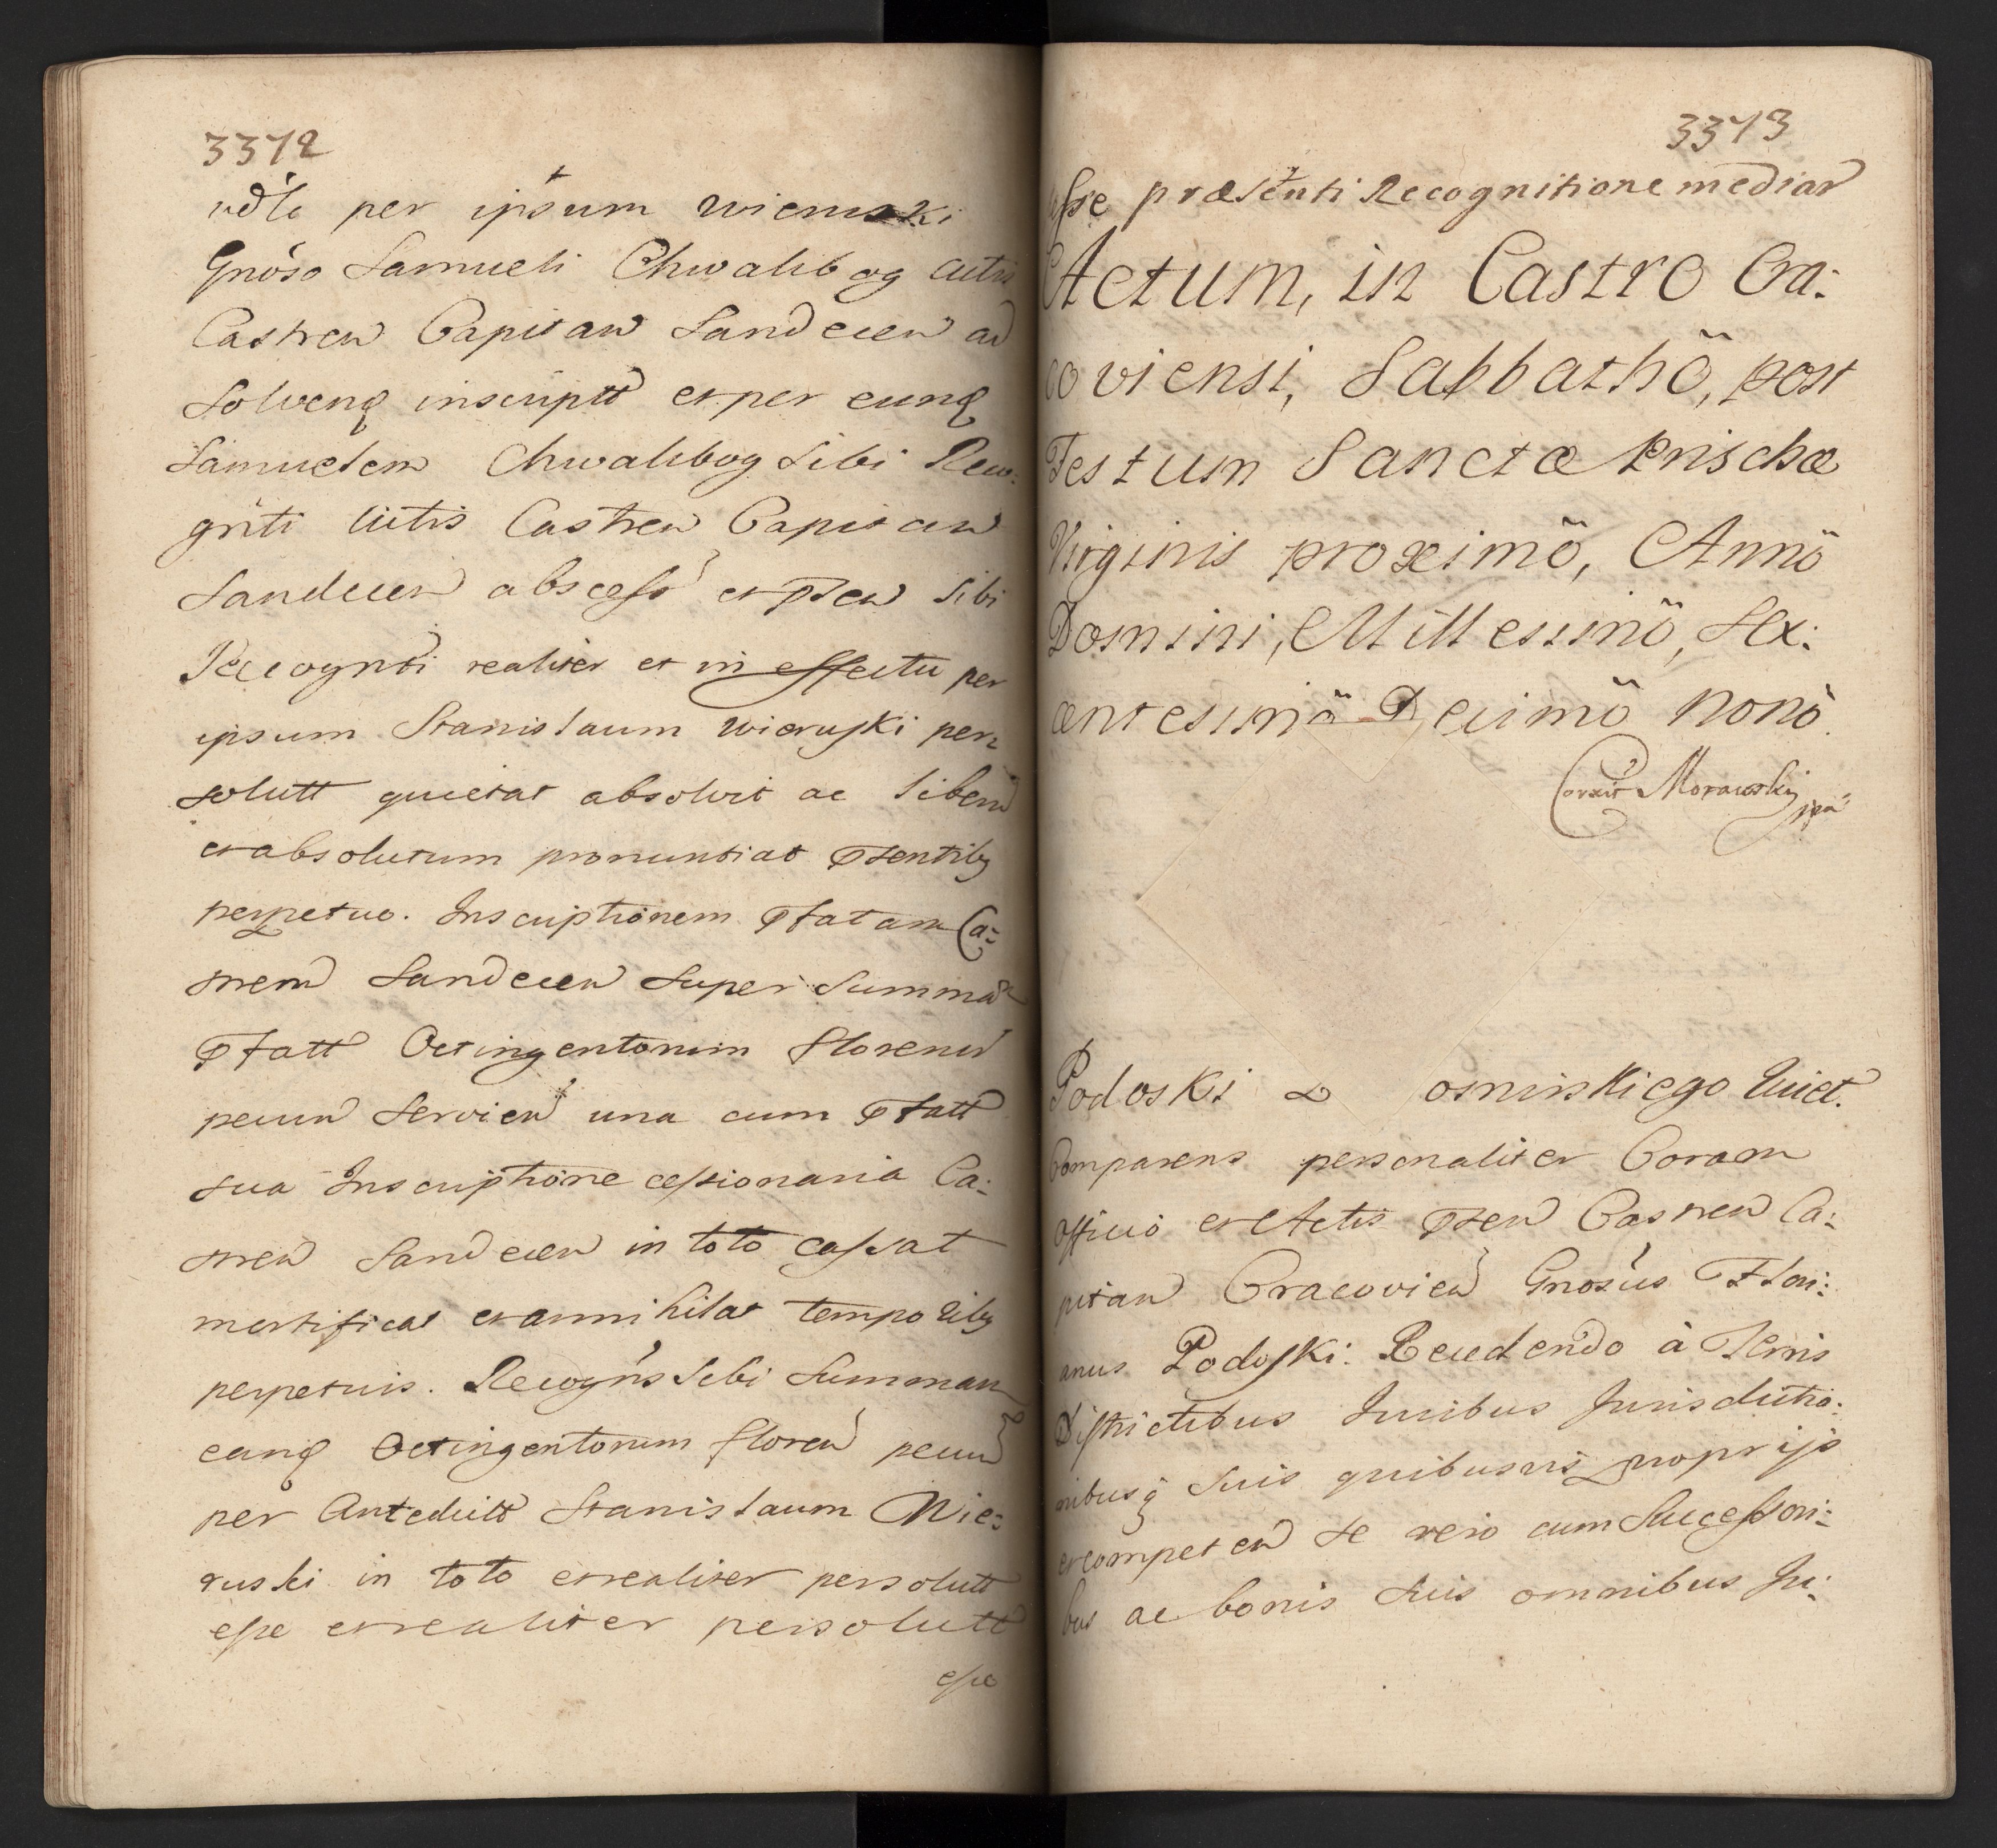 3372
vdlt per ipsum Wieruski
Gnoso Samueli Chwalibog actis
Castren Capitan Sandecen ad
Solvenq inscriptt et per eunq
Samuelem Chwalibog Sibi Reco:
gnti actis Castren Capitan
Sandecen abscess et pten Sibi
Recognti realiter et in effectu per
ipsum Stanislaum Wieruski per:
solutt quietat absolvit ac liberu
et absolutum pronuntiat ptentibq
perpetuo. Inscriptionem pfatam Ca:
stren Sandecen super Summa
pfatt Octingentorum florenor
pecun Servien una cum pfatt
sua Inscriptione cessionaria Ca:
stren Sandecen in toto cassat
mortificat et annihilat temporibq
perpetuis. Recogns Sibi Summam
eanq Octingentorum floren pecun
per Antedictt Stanislaum Wie:
ruski in toto et realiter persolutt
esse et realiter persolutt
esse
3373
esse præsenti Recognitione median
Actum, in Castro Cra:
coviensi, Sabbathô, post
Festum Sanctæ Prischæ
Virginis proximô, Annô
Domini, Millesimô, Sex:
centesimô Decimô Nonô.
Correxit Morawski mpa
Podoski a Osninskiego Quiet.
Comparens personaliter Coram
Officio et Actis pten Castren Ca:
pitan Cracovien Gnosus Flori:
anus Podoski. Recedendo à Terris
Districtibus Juribus Jurisdictio:
nibusq Suis quibusvis proprijs
et competen se vero cum Successori:
bus ac bonis Suis omnibus Ju: